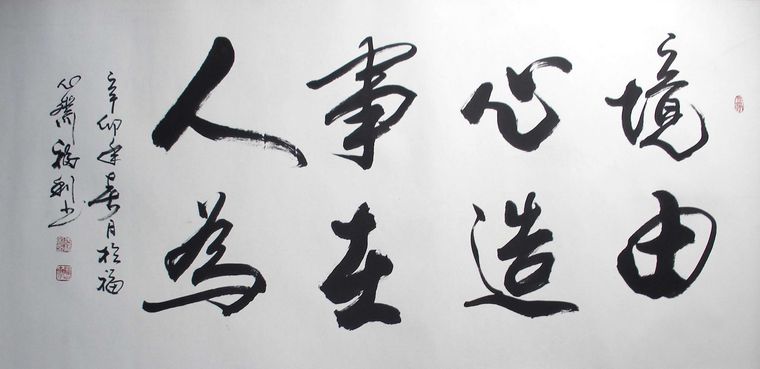 境由
心造
事在
人為
辛卯年春月於福
心齋福利书